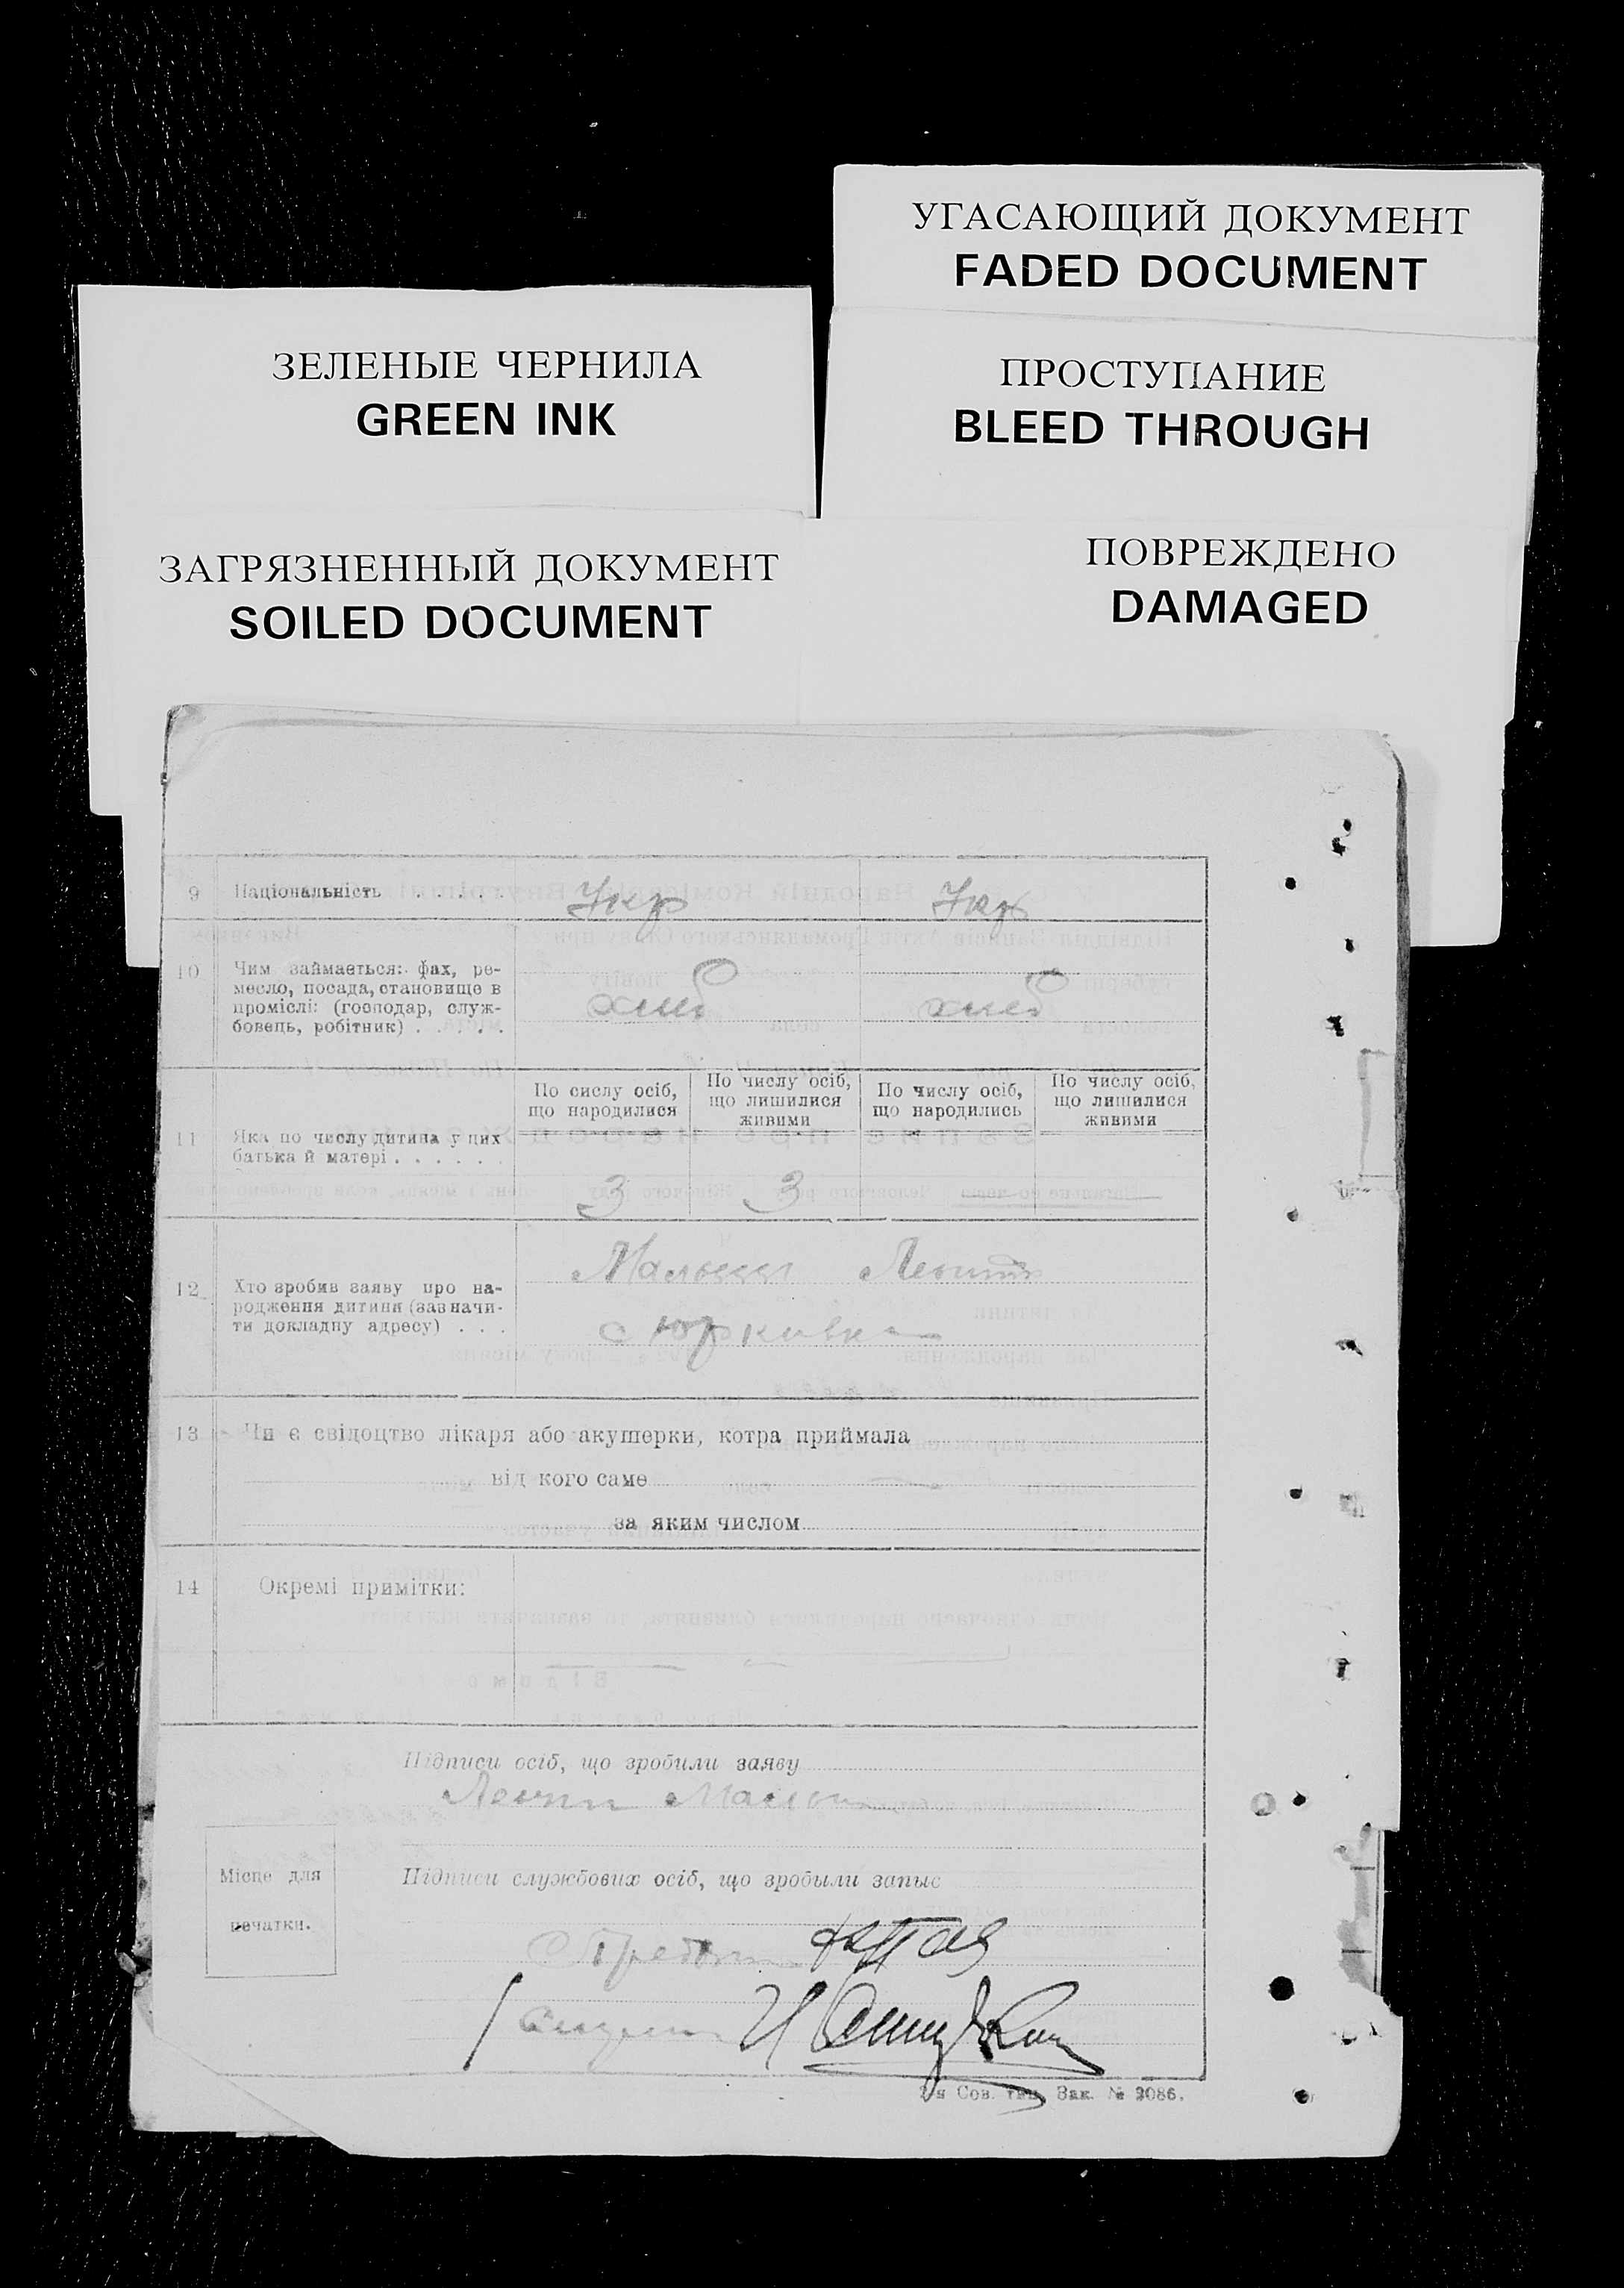 УГАСАЮЩИЙ ДОКУМЕНТ
FADED DOCUMENT
ЗЕЛЕНЫЕ ЧЕРНИЛА
GREEN INK
ПРОСТУПАНИЕ
BLEED THROUGH
ЗАГРЯЗНЕННЫЙ ДОКУМЕНТ
SOILED DOCUMENT
ПОВРЕЖДЕНО
DAMAGED
9 Національність . . . . . Укр Укр
10 Чим займається: фах, ре-
месло, посада, становище в
промислі: (господар, служ-
бовець, робітник) . . . . .
хліб хліб
По сислу осіб,
що народилися
По числу осіб,
що лишилися
живими
По числу осіб,
що народились
По числу осіб,
що лишилися
живими
11 Яка по числу дитина у цих
батька й матері . . . . . .
3 3
12 Хто зробив заяву про на-
родження дитини (зазначи-
ти докладну адресу) . . .
с Юркивка
13 Чи є свідоцтво лікаря або акушерки, котра приймала
від кого саме
за яким числом
14 Окремі примітки:
Підписи осіб, що зробили заяву
Місце для
печатки.
Підписи службових осіб, що зробыли запыс
2-я Сов. тип. Зак. № 2086.